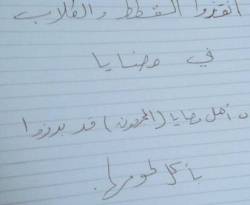 انقذوا القطط والكلاب
في مضايا
أهل مضايا (المحاصرون) قد بدءوا
بأكل لحومها.